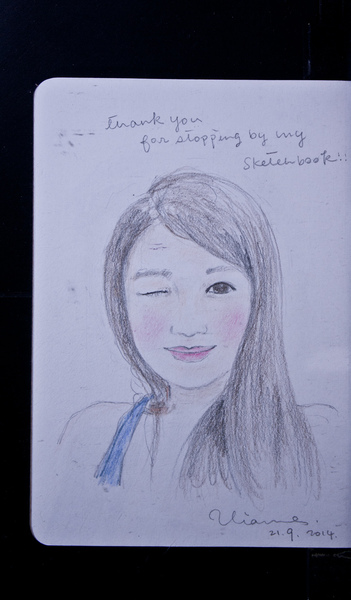 Thank you
for stopping by my
Sketchbook!!
21.9. 2014.